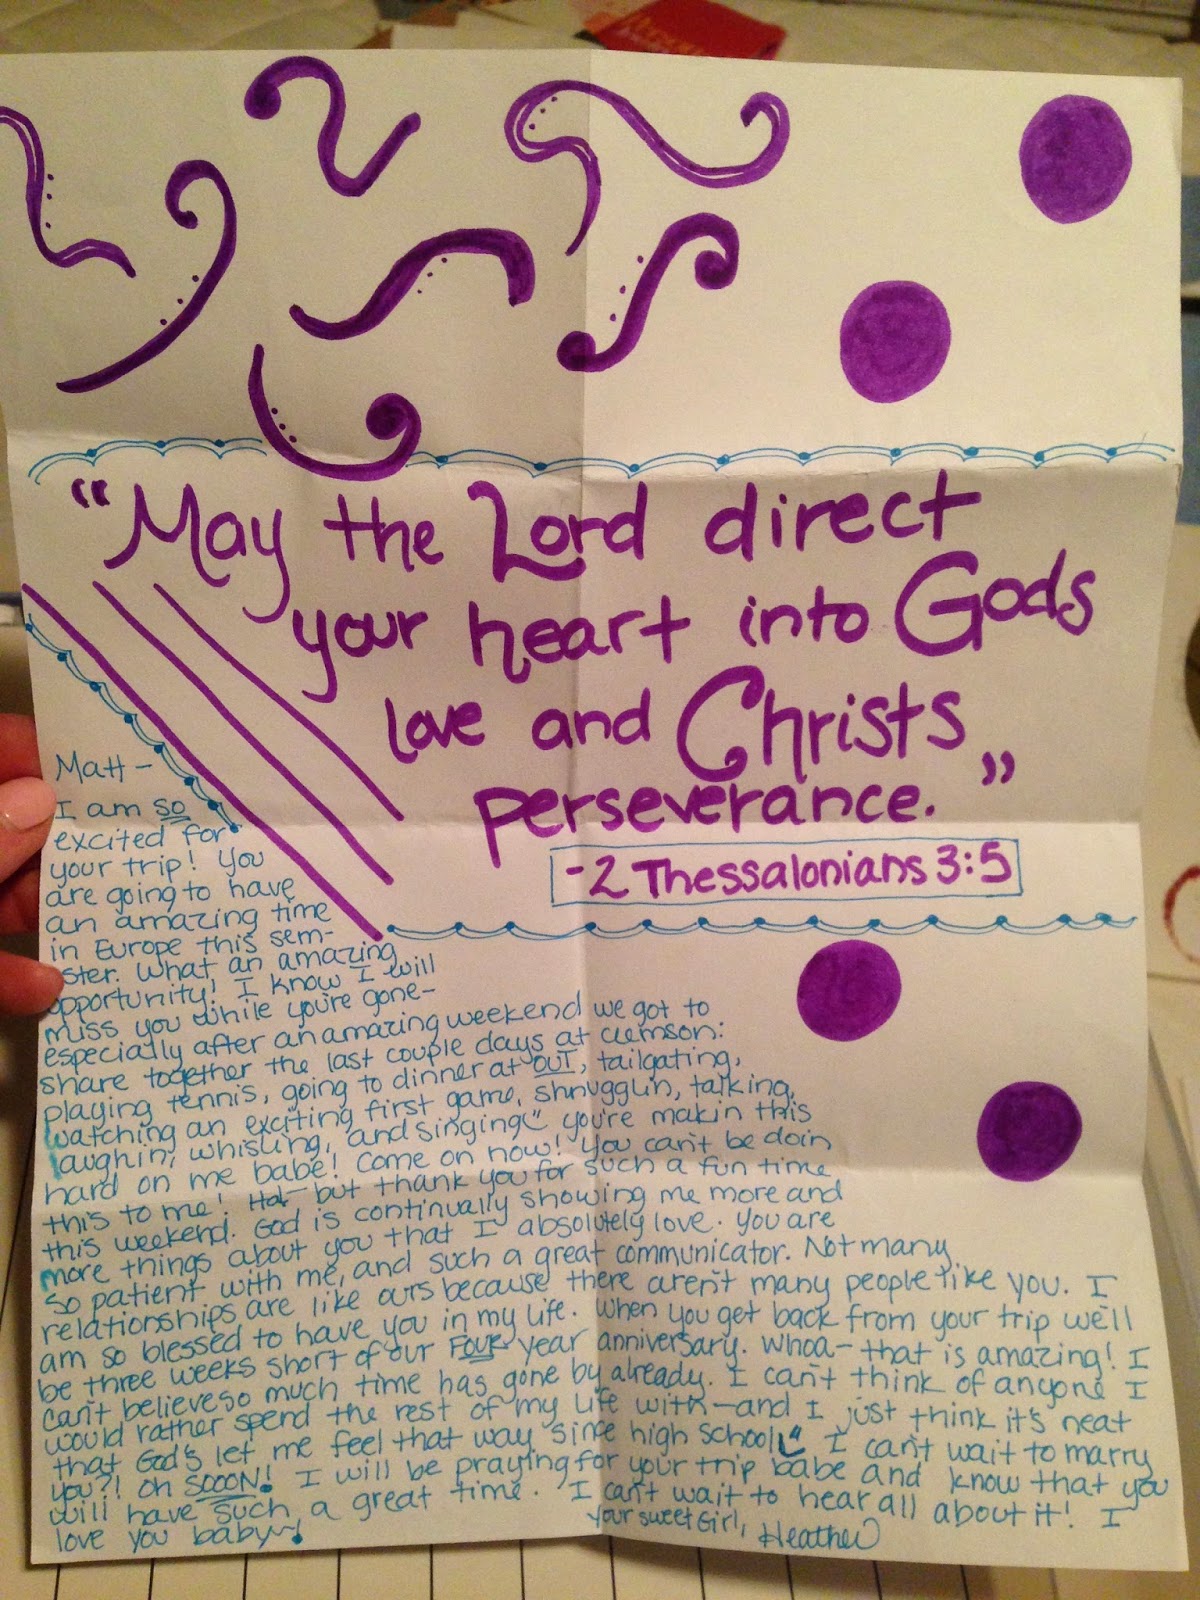 “May the Lord direct
your heart into Gods
love and Christs
perseverance.”
-2 Thessalonians 3:5
Matt-
I am so
excited for
your trip! You
are going to have
an amazing time
in Europe this sem-
ster. What an amazing
opportunity! I know I will
miss you while you're gone-
especially after an amazing weekend we got to
share together the last couple days at Clemson:
playing tennis, going to dinner at OUT, tailgating,
watching an exciting first game, shnugglin, talking,
laughin, whisling, and singing you're makin this
hard on me babe! Come on now! You can't be doin
this to me! Ha!- but thank you for such a fun time
this weekend. God is continually showing me more and
more things about you that I absolutely love. You are
so patient with me, and such a great communicator. Not many
relationships are like ours because there aren't many people like you. I
am so blessed to have you in my life. When you get back from your trip we'll
be three weeks short of our Four year anniversary. Whoa- that is amazing! I
can't believe so much time has gone by already. I can't think of anyone I
would rather spend the rest of my life with-and I just think it's neat
that God's let me feel that way since high school I can't wait to marry
you?! Oh SOOON! I will be praying for your trip babe and know that you
will have such a great time. I can't wait to hear all about it! I
love you baby~!
Your sweet Girl, Heather